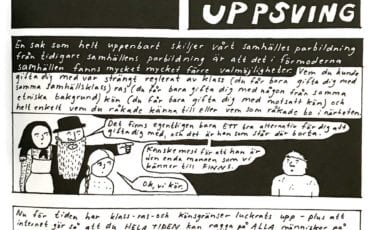 UPPSVING
En sak som helt uppenbart skiljer vårt samhälles parbildning
från tidigare samhällens parbildning är att det i förmoderna
samhällen fanns mycket mycket färre valmöjligheter. Vem du kunde
gifta dig med var strängt reglerat av klass (du får bara gifta dig med
samma samhällsklass) ras (du får bara gifta dig med någon från samma
etniska bakgrund) kön (du får bara gifta dig med motsatt kön) och
helt enkelt vem du råkade känna till eller vem som råkade bo i närheten.
Det finns egentligen bara ETT bra alternativ för dig att
gifta dig med, och det är han som står där borta.
Kanske mest för att han är
den enda mannen som vi
känner till FINNS.
Ok, vi kör.
Nu för tiden har klass-ras-och könsgränser luckrats upp - plus att
internet gör så att du HELA TIDEN kan ragga på ALLA människor på